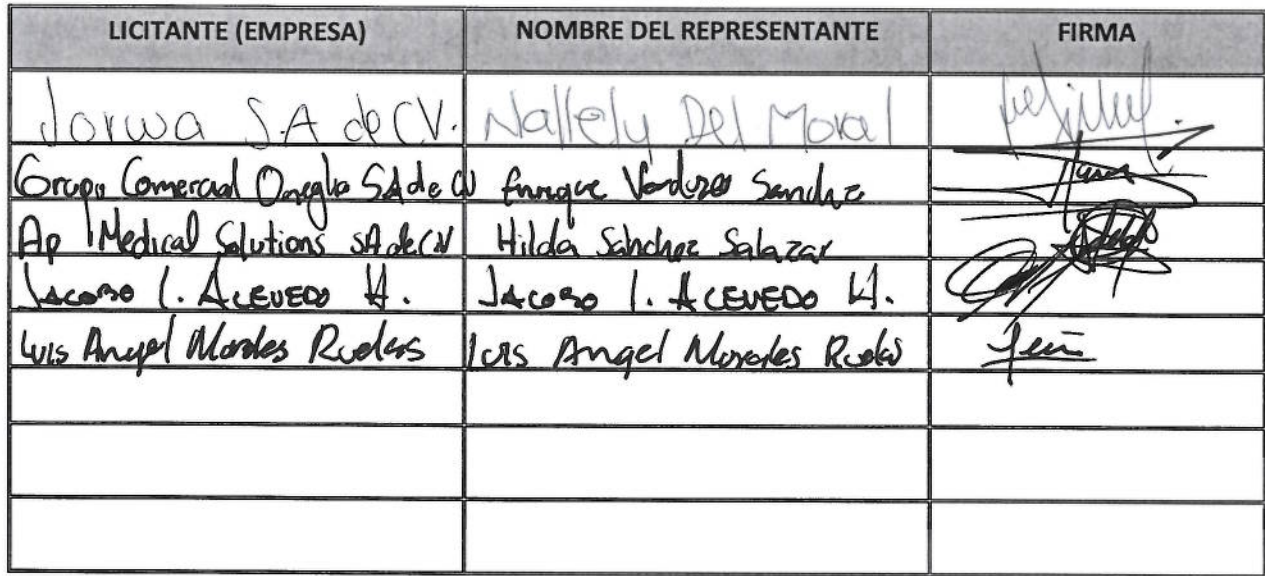 LICITANTE (EMPRESA) NOMBRE DEL REPRESENTANTE FIRMA
Jorwa S.A de CV. Nallely Del Moral
Grupo Comercial SA de CV Enrique Verduzco Sanchez
Ap Medical Solutions SA de CV Hilda Sanchez Salazar
JACOBO I. ACEVEDO H. JACOBO I. ACEVEDO H.
Luis Angel Morales Ruelas Luis Angel Morales Ruelas